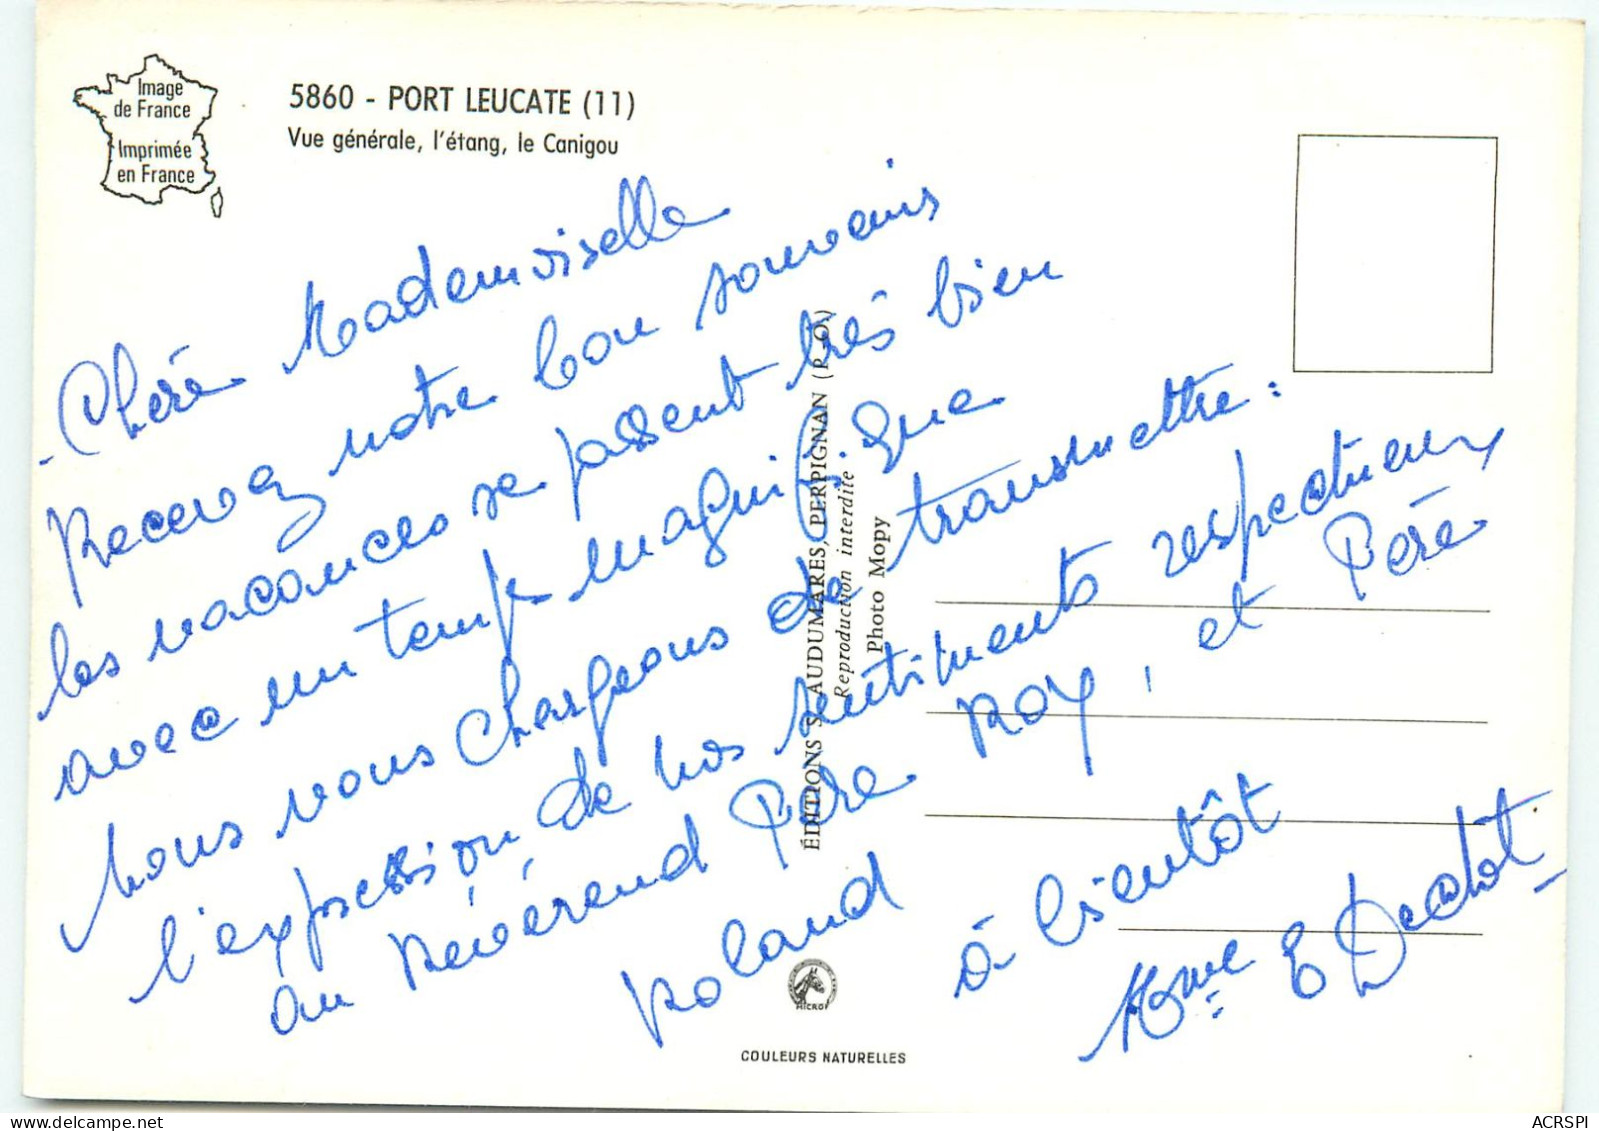 Image
de France
Imprimée
en France
5860 - PORT LEUCATE (11)
Vue générale, l'étang, le Canigou
Chère Mademoiselle
Recevez notre bon souvenirs
les vacances se passent très bien
avec un temps magnifique
Nous vous chargeons de transmettre :
l'expression de nos sentiments respectueux
au Révérend Père ROY, et Père
Roland
à bientôt
Mme E
ÉDITIONS S. AUDUMARES, PERPIGNAN (P.-O.)
Reproduction interdite
Photo Mopy
MICRO
COULEURS NATURELLES
ACRSPI